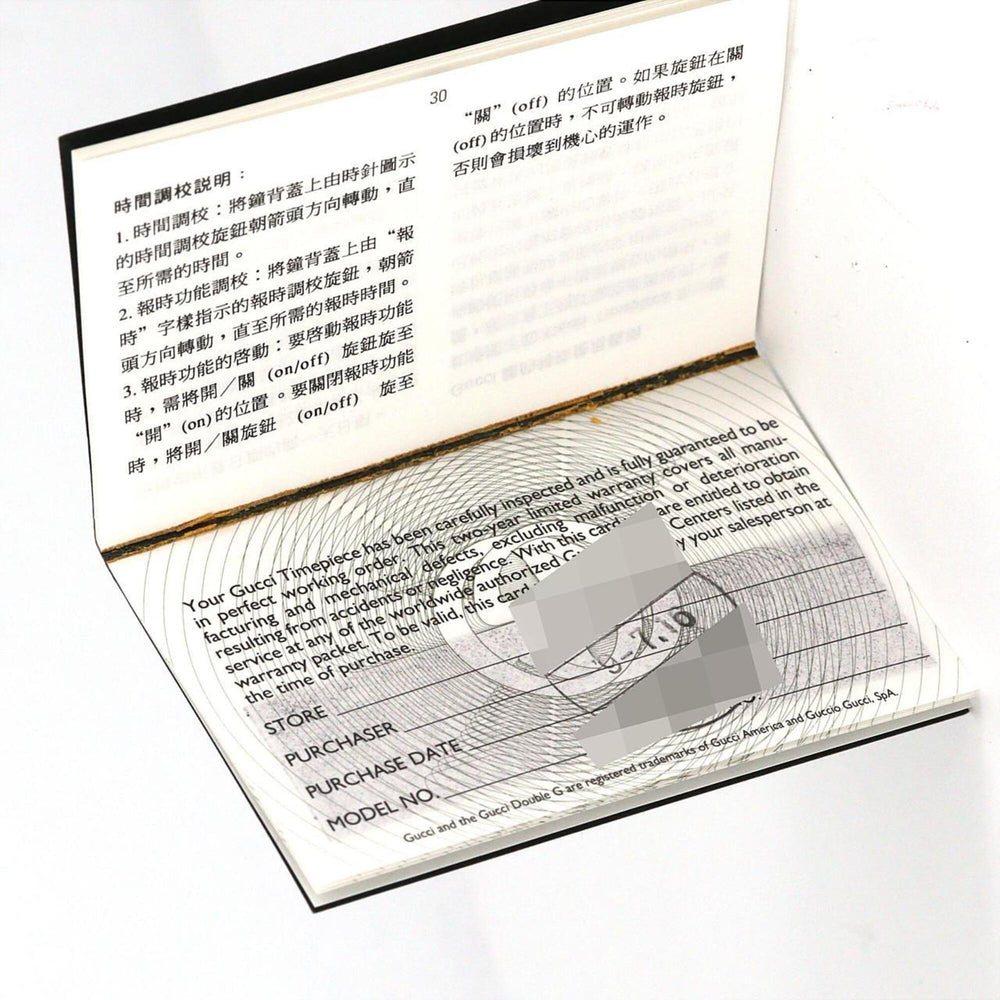 30
時間調校説明：
1. 時間調校：將鐘背蓋上由時針圖示
的時間調校旋鈕朝箭頭方向轉動，直
至所需的時間。
2. 報時功能調校：將鐘背蓋上由“報
時”字樣指示的報時調校旋鈕，朝箭
頭方向轉動，直至所需的報時時間。
3. 報時功能的啓動：要啓動報時功能
時，需將開／關 (on/off) 旋鈕旋至
“開”(on)的位置。要關閉報時功能
時，將開／關旋鈕 (on/off) 旋至
“關”(off) 的位置。如果旋鈕在關
(off)的位置時，不可轉動報時旋鈕，
否則會損壞到機心的運作。
Your Gucci Timepiece has been carefully inspected and is fully guaranteed to be
in perfect working order. This two-year limited warranty covers all manu-
facturing and mechanical defects, excluding malfunction or deterioration
resulting from accidents or negligence. With this card are entitled to obtain
service at any of the worldwide authorized Centers listed in the
warranty packet. To be valid, this card by your salesperson at
the time of purchase.
STORE
PURCHASER
PURCHASE DATE
MODEL NO.
Gucci and the Gucci Double G are registered trademarks of Gucci America and Guccio Gucci, SpA.